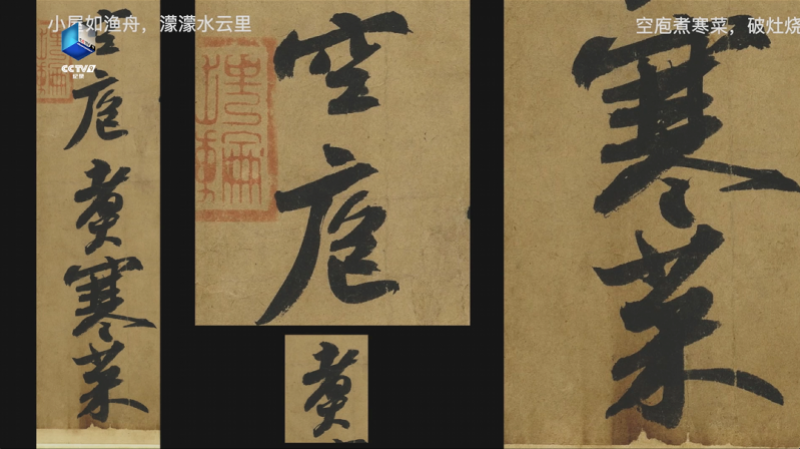 小屋如渔舟，濛濛水云里
空庖煮寒菜，破灶烧
CCTV
空庖煮寒菜
空庖
煮
寒菜